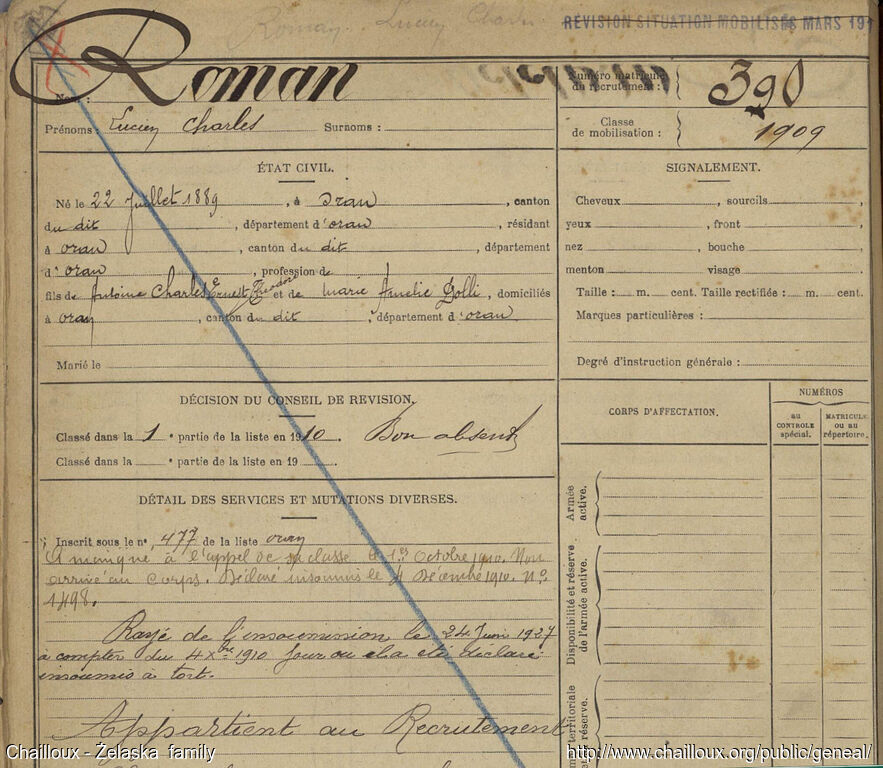 Roman Lucien Charles
REVISION SITUATION MOBILISÉS MARS 191
Roman
Nom :
Prénoms : Lucien Charles Surnoms :
Numéro matricule du recrutement : 390
Classe de mobilisation : 1909
ÉTAT CIVIL.
Né le 22 Juillet 1889, à Oran, canton
du dit, département d'oran, résidant
à oran, canton du dit, département
d'oran, profession de
fils de Antoine Charles Ernest Théodore et de Marie Amélie Golli, domiciliés
à oran, canton du dit, département d'oran
Marié le
SIGNALEMENT.
Cheveux , sourcils ,
yeux , front ,
nez , bouche ,
menton visage
Taille : m. cent. Taille rectifiée : m. cent.
Marques particulières :
Degré d'instruction générale :
DÉCISION DU CONSEIL DE REVISION.
Classé dans la 1e partie de la liste en 1910. Bon absent
Classé dans la e partie de la liste en 19 .
DÉTAIL DES SERVICES ET MUTATIONS DIVERSES.
Inscrit sous le n° 477 de la liste oran
A manqué à l'appel de sa classe le 1er Octobre 1910. Non
arrivé au corps. Déclaré insoumis le 4 Décembre 1910. N°
1498.
Rayé de l'insoumission le 24 Juin 1927
à compter du 4 Xbre 1910 jour où il a été déclaré
insoumis à tort.
Appartient au Recrutement
CORPS D'AFFECTATION.
NUMÉROS
au CONTROLE spécial.
MATRICULE ou au répertoire.
Armée active.
Disponibilité et réserve de l'armée active.
territoriale
réserve.
Chailloux - Żelaska family
http://www.chailloux.org/public/geneal/